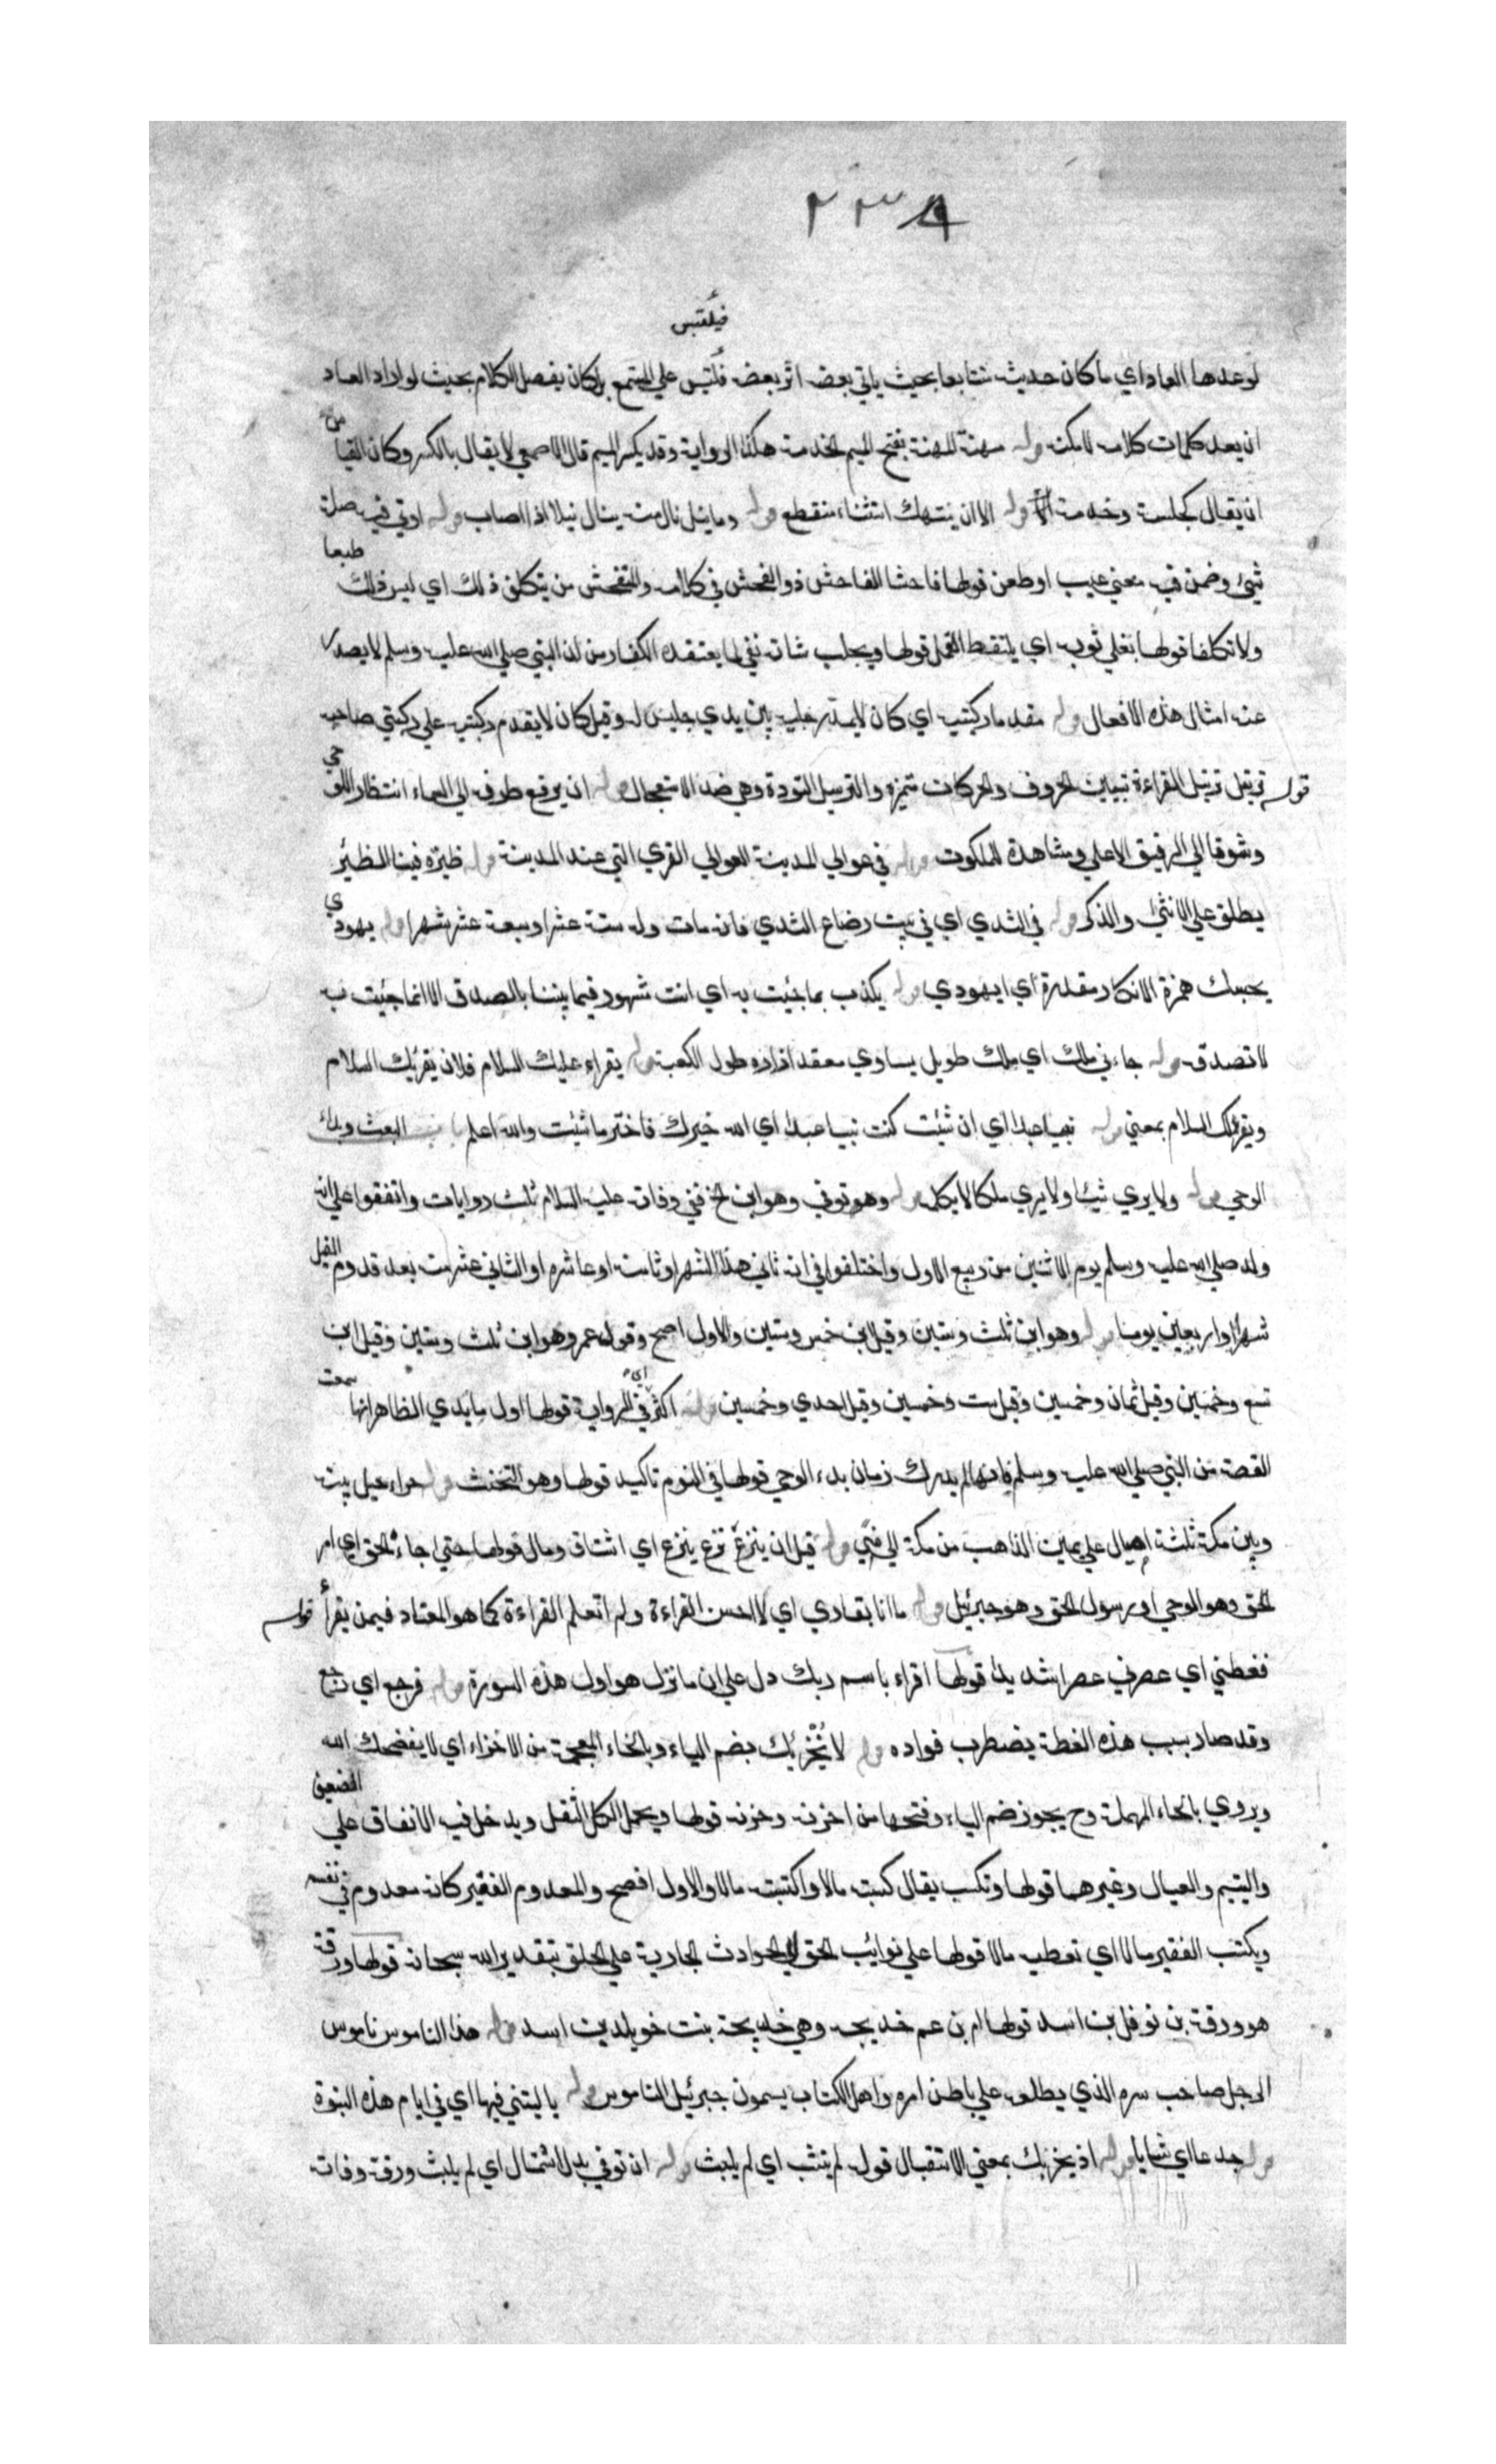 ٢٣٨
فيلتبس
لوعدها العاد اي ما كان حديثه متتابعا بحيث ياتي بعض اثر بعض فيلتبس علي المستمع بل كان يفصل الكلام بحيث لو اراد العاد
ان يعد كلمات كلامه لامكنه قوله مهنة المهنة بفتح الميم الخدمة هكذا الرواية وقد يكسر الميم قال الاصمعي لا يقال بالكسر وكان القياس
ان يقال كجلسة وخدمة قوله الا ان ينتهك استثناء منقطع قوله وما نيل نال منه ينال نيلا اذا اصاب قوله اوتي فيه صلة
شيئ وضمن فيه معني عيب او طعن قولها فاحشا الفاحش ذو الفحش في كلامه والمتفحش من يتكلف ذلك اي ليس ذلك طبعا
ولا تكلفا قولها يفلي ثوبه اي يلتقط القمل قولها ويحلب شاته نفي لما يعتقده الكفار من ان النبي صلي الله عليه وسلم لا يصدر
عنه امثال هذه الافعال قوله مقدما ركبتيه اي كان لا يمد رجليه بين يدي جليس له وقيل كان لا يقدم ركبتيه علي ركبتي صاحبه
قوله ترتيل ترتيل القراءة تبيين الحروف والحركات متميزه والترسل التودة وهي ضد الاستعجال قوله ان يرفع طرفه الي السماء انتظار الوحي
وشوقا الي الرفيق الاعلي ومشاهدة الملكوت قوله في عوالي المدينة العوالي القري التي عند المدينة قوله ظيره فينا الظئر
يطلق علي الانثي والذكر قوله في الثدي اي في سن رضاع الثدي فانه مات وله ستة عشر او سبعة عشر شهرا قوله يهودي
يحبسك همزة الانكار مقدرة أي ايهودي قوله يكذب بما جئت به اي انت مشهور فيما بيننا بالصدق الا انما جئت به
لا تصدق قوله جاءني ملك اي ملك طويل يساوي معقد ازاره طول الكعبة قوله يقراء عليك السلام فلان يقرئك السلام
ويقرئك السلام بمعني قوله نبيا عبدا اي ان شئت كنت نبيا عبدا اي الله خيرك فاختر ما شئت والله اعلم باب المبعث وبداء
الوحي قوله ولا يري شيئا ولا يري ملكا لا يكلمه قوله وهو توفي وهو ابن الخ ففي وفاته عليه السلام ثلث روايات واتفقوا علي انه
ولد صلي الله عليه وسلم يوم الاثنين من ربيع الاول واختلفوا في انه ثاني هذا الشهر او ثامنه او عاشره او الثاني عشر منه بعد قدوم الفيل
شهرا او اربعين يوما قوله وهو ابن ثلث وستين وقيل ابن خمس وستين والاول اصح وقوله عمر وهو ابن ثلث وستين وقيل ابن
تسع وخمسين وقيل ثمان وخمسين وقيل ست وخمسين وقيل احدي وخمسين قوله اكثر اي في الرواية قولها اول ما بدي الظاهر انها سمعت
القصة من النبي صلي الله عليه وسلم فانها لم يدرك زمان بدء الوحي قولها في النوم تاكيد قولها وهو التحنث قوله حراء جبل بينه
وبين مكة ثلثة اميال علي يمين الذاهب من مكة الي مني قوله قبل ان ينزع نزع ينزع اي اشتاق ومال قولها حتي جاءه الحق اي امر
الحق وهو الوحي او رسول الحق وهو جبرئيل قوله ما انا بقاري اي لا احسن القراءة ولم اتعلم القراءة كما هو المعتاد فيمن يقرأ قوله
فغطني اي عصرني عصرا شديدا قولها اقراء باسم ربك دل علي ان ما نزل هو اول هذه السورة قوله فرجع اي رجع
وقد صار بسبب هذه الغطة يضطرب فواده قوله لا يُخْزيك بضم الياء وبالخاء المعجمة من الاخزاء اي لا يفضحك الله
ويروي بالحاء المهملة وح يجوز ضم الياء وفتحها من احزنه وحزنه قولها ويحمل الكل الثقل ويدخل فيه الانفاق علي الضعيف
واليتيم والعيال وغيرهما قولها وتكسب يقال كسبت مالا واكتسبت مالا والاول افصح والمعدوم الفقير كانه معدوم في نفسه
ويكتسب الفقير مالا اي تعطيه مالا قولها علي نوائب الحق اي الحوادث الجارية علي الخلق بتقدير الله سبحانه قولها ورقة
هو ورقة بن نوفل بن اسد قولها ابن عم خديجه وهي خديجة بنت خويلد بن اسد قوله هذا الناموس ناموس
الرجل صاحب سره الذي يطلعه علي باطن امره واهل الكتاب يسمون جبرئيل الناموس قوله يا ليتني فيها اي في ايام هذه النبوة
قوله جدعا اي شابا قوله اذ يخرجك بمعني الاستقبال قوله لم ينشب اي لم يلبث قوله ان توفي بدل الاشتمال اي لم يلبث ورقة وفاته